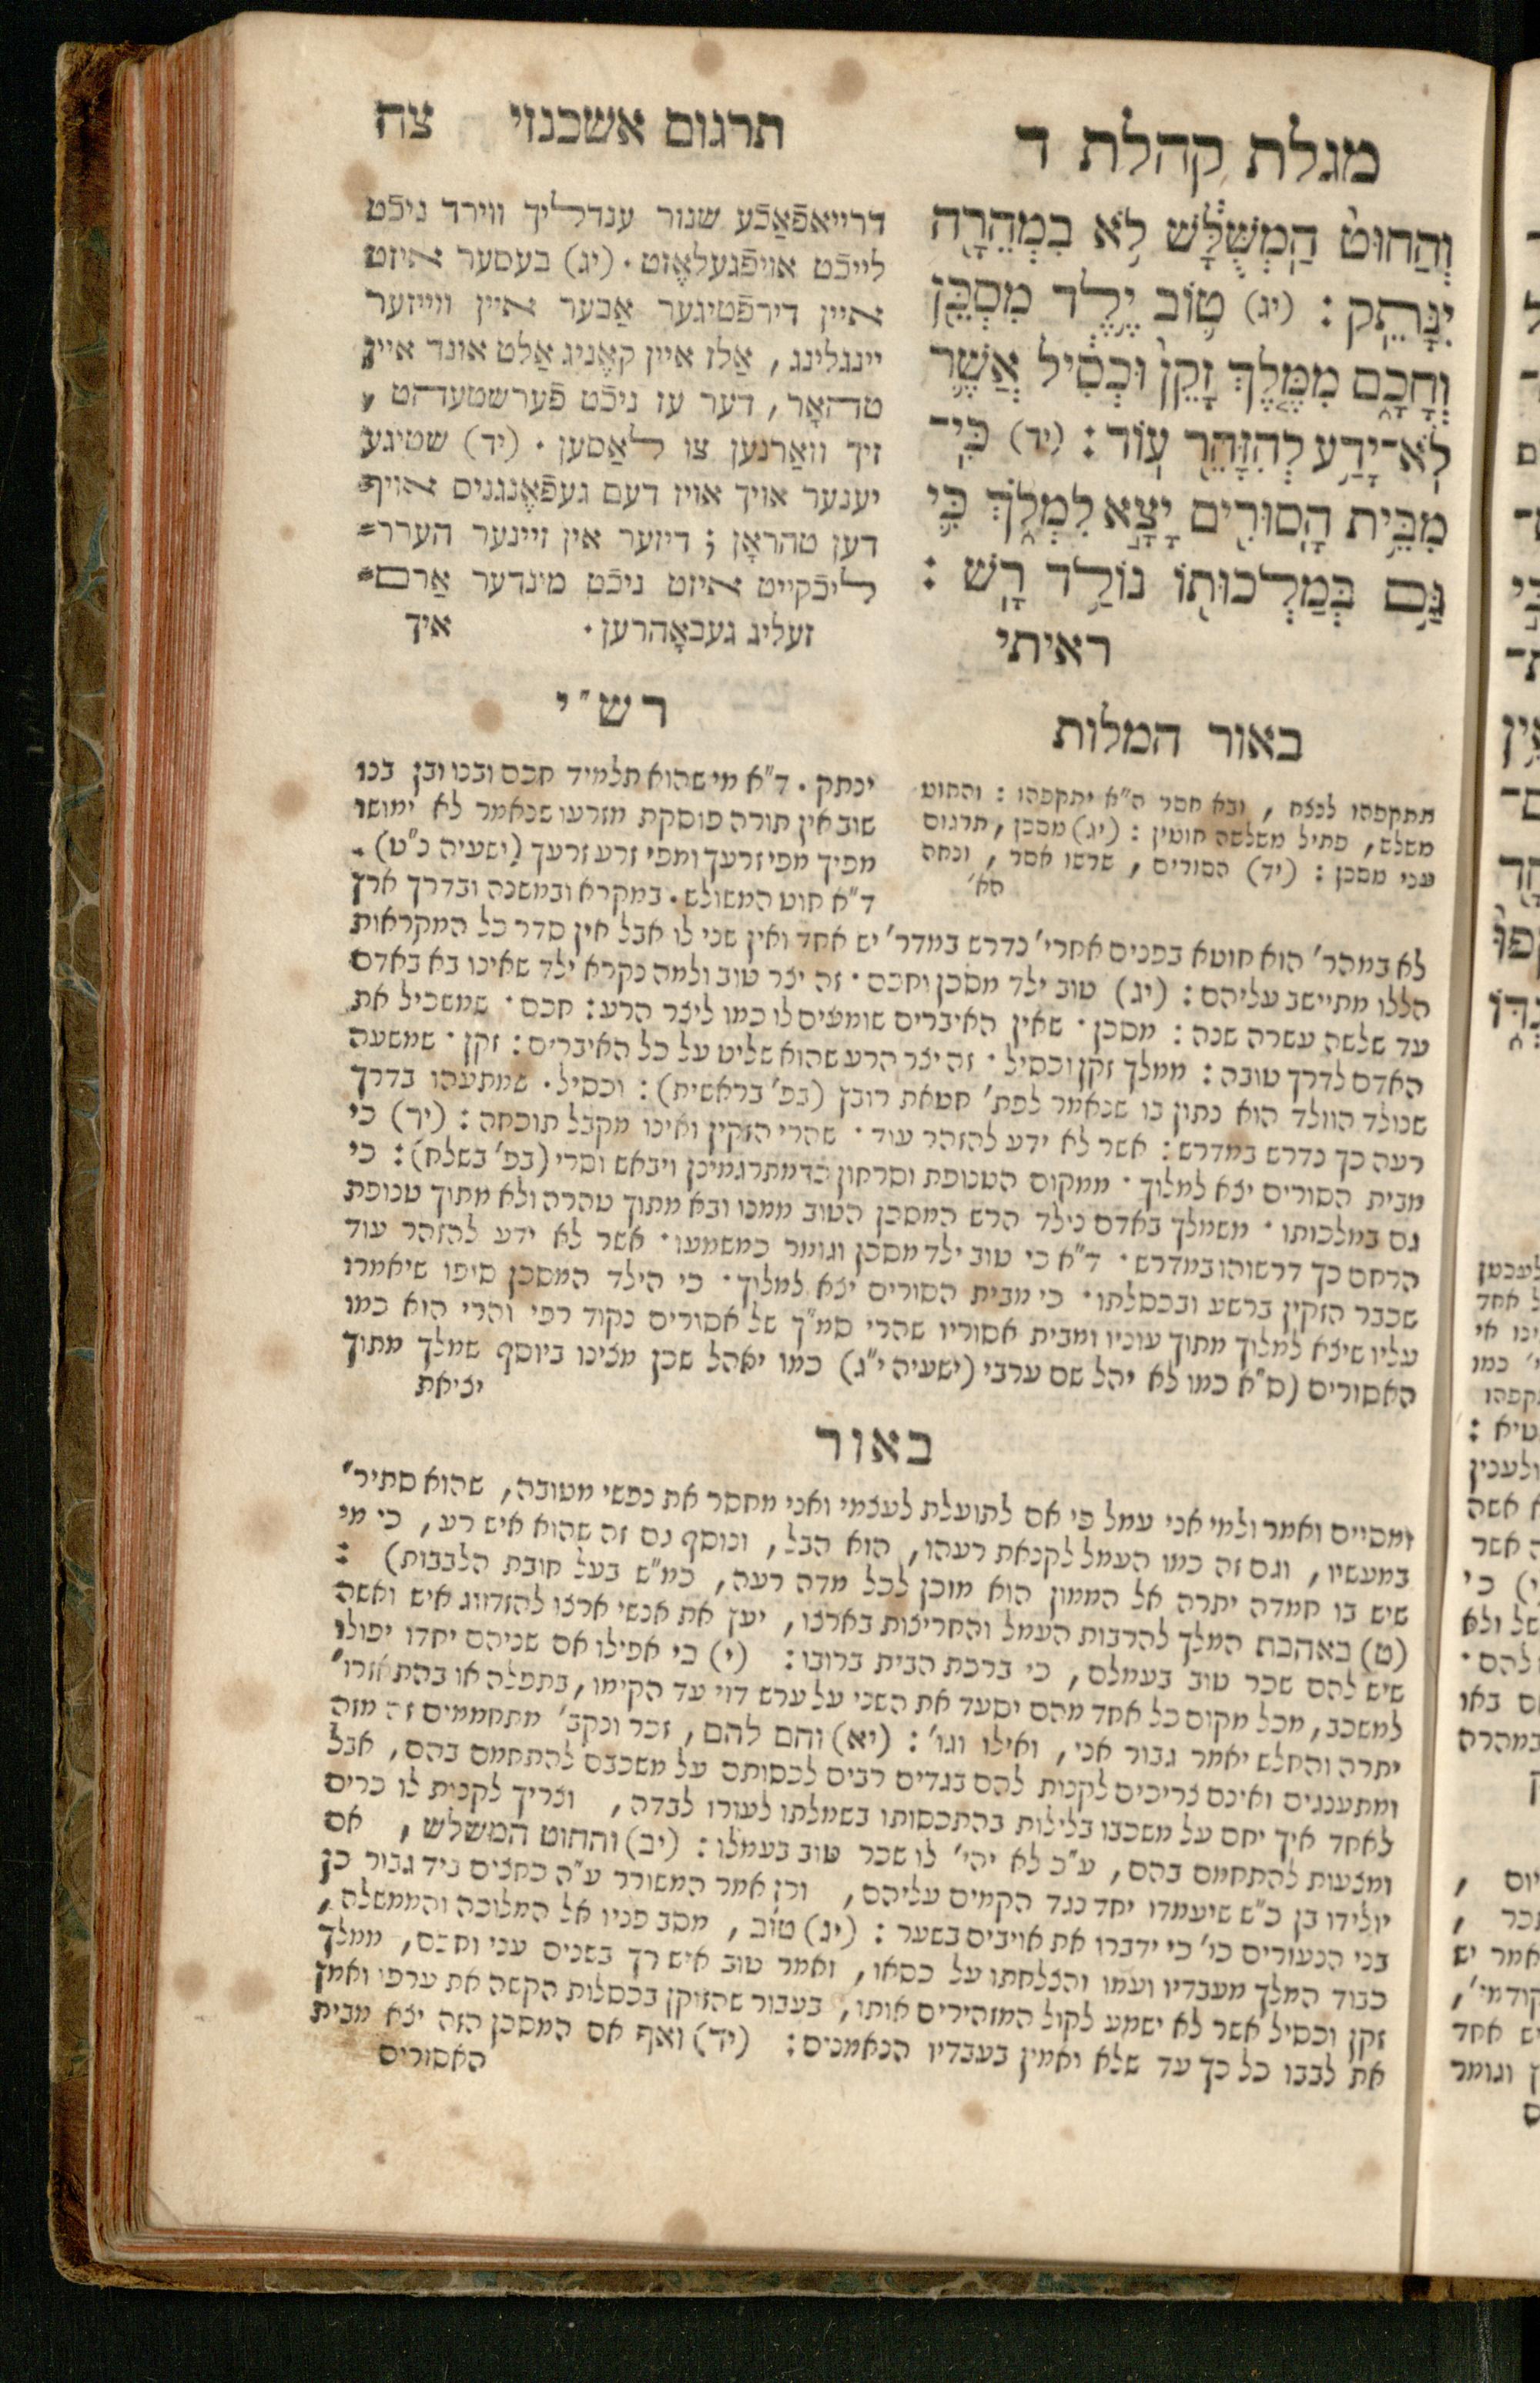 מגלת קהלת ד
תרגום אשכנזי צח
וְהַחוּט֙ הַֽמְשֻׁלָּ֔שׁ לֹ֥א בִמְהֵרָ֖ה
יִנָּתֵֽק׃ (יג) ט֛וֹב יֶ֥לֶד מִסְכֵּ֖ן
וְחָכָ֑ם מִמֶּ֤לֶךְ זָקֵן֙ וּכְסִ֔יל אֲשֶׁ֛ר
לֹֽא־יָדַ֥ע לְהִזָּהֵ֖ר עֽוֹד׃ (יד) כִּֽי־
מִבֵּ֥ית הָסוּרִ֖ים יָצָ֣א לִמְלֹ֑ךְ כִּ֛י
גַּ֥ם בְּמַלְכוּת֖וֹ נוֹלַ֥ד רָֽשׁ׃
ראיתי
דרייאפֿאַכֿע שנור ענדליך ווירד ניכֿט
לייכֿט אויפֿגעלאָזט. (יג) בעסער איזט
איין דירפֿטיגער אַבער איין ווייזער
יינגלינג, אַלז איין קאָניג אַלט אונד איין
טהאָר, דער עז ניכֿט פֿערשטעהט,
זיך וואַרנען צו לאַסען. (יד) שטיגע
יענער אויך אויז דעם געפֿאֶנגניס אויף
דען טהראָן; דיזער אין זיינער הערר=
ליכֿקייט איזט ניכֿט מינדער אַרם=
זעליג געבאָהרען. איך
באור המלות
תתקפהו לנצח, ובא חסר ה"א יתקפהו: והחוט
משלש, פתיל משלשה חוטין: (יג) מסכן, תרגום
עני מסכן: (יד) הסורים, שרשו אסר, ונחה
הא'
רש"י
ינתק. ד"א מי שהוא תלמיד חכם ובנו ובן בנו
שוב אין תורה פוסקת מזרעו שנאמר לא ימושו
מפיך מפי זרעך ומפי זרע זרעך (ישעיה נ"ט).
ד"א חוט המשולש. במקרא ובמשנה ובדרך ארץ
לא במהר' הוא חוטא בפנים אחרי' נדרש במדר' יש אחד ואין שני לו אבל אין סדר כל המקראות
הללו מתיישב עליהם: (יג) טוב ילד מסכן וחכם. זה יצר טוב ולמה נקרא ילד שאינו בא באדם
עד שלשה עשרה שנה: מסכן. שאין האיברים שומעים לו כמו ליצר הרע: חכם. שמשכיל את
האדם לדרך טובה: ממלך זקן וכסיל. זה יצר הרע שהוא שליט על כל האיברים: זקן. שמשעה
שנולד הוולד הוא נתון בו שנאמר לפת' חטאת רובץ (בפ' בראשית): וכסיל. שמתעהו בדרך
רעה כך נדרש במדרש: אשר לא ידע להזהר עוד. שהרי הזקין ואינו מקבל תוכחה: (יד) כי
מבית הסורים יצא למלוך. ממקום הטנופת וסרחון כדמתרגמינן ויבאש וסרי (בפ' בשלח): כי
גם במלכותו. משמלך באדם כילד הרש המסכן הטוב ממנו ובא מתוך טהרה ולא מתוך טנופת
הרחם כך דרשוהו במדרש. ד"א כי טוב ילד מסכן וגומר כמשמעו. אשר לא ידע להזהר עוד
שכבר הזקין ברשע ובכסלתו. כי מבית הסורים יצא למלוך. כי הילד המסכן סיפו שיאמרו
עליו שיצא למלוך מתוך עוניו ומבית אסוריו שהרי סמ"ך של אסורים נקוד רפי והרי הוא כמו
האסורים (ס"א כמו לא יהל שם ערבי (ישעיה י"ג) כמו יאהל שכן מצינו ביוסף שמלך מתוך
יציאת
באור
ומסיים ואמר ולמי אני עמל פי אם לתועלת לעצמי ואני מחסר את נפשי מטובה, שהוא סתיר'
במעשיו, וגם זה כמו העמל לקנאת רעהו, הוא הבל, ונוסף גם זה שהוא איש רע, כי מי
שיש בו חמדה יתרה אל הממון הוא מוכן לכל מדה רעה, כמ"ש בעל חובת הלבבות):
(ט) באהבת המלך להרבות העמל והחריצות בארצו, יען את אנשי ארצו להזדווג איש ואשה
שיש להם שכר טוב בעמלם, כי ברכת הבית ברובו: (י) כי אפילו אם שניהם יחדו יפולו
למשכב, מכל מקום כל אחד מהם יסעד את השני על ערש דוי עד הקימו, בתפלה או בהתאזרו'
יתרה והחלש יאמר גבור אני, ואילו וגו': (יא) וחם להם, זכר ונקב' מתחממים זה מזה
ומתענגים ואינם צריכים לקנות להם בגדים רבים לכסותם על משכבם להתחמם בהם, אבל
לאחד איך יחם על משכבו בלילות בהתכסותו בשמלתו לעורו לבדה, וצריך לקנות לו כרים
ומצעות להתחמם בהם, ע"כ לא יהי' לו שכר טוב בעמלו: (יב) והחוט המשלש, אם
יולידו בן כ"ש שיעמדו יחד כנגד הקמים עליהם, וכן אמר המשורר ע"ה כחצים ביד גבור כן
בני הנעורים כו' כי ידברו את אויבים בשער: (יג) טוב, מסב פניו אל המלוכה והממשלה,
כבוד המלך מעבדיו ועמו והצלחתו על כסאו, ואמר טוב איש רך בשנים עני וחכם, ממלך
זקן וכסיל אשר לא ישמע לקול המזהירים אותו, בעבור שהזוקן בכסלות הקשה את ערפו ואמץ
את לבבו כל כך עד שלא יאמין בעבדיו הנאמנים: (יד) ואף אם המסכן הזה יצא מבית
האסורים